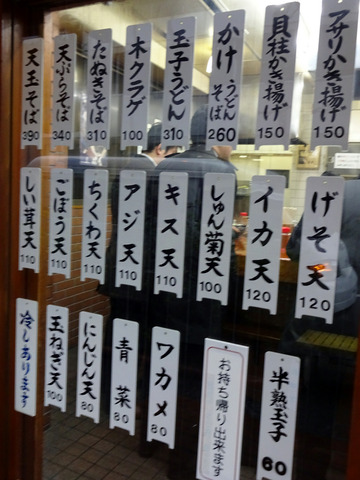 アサリかき揚げ 150
貝柱かき揚げ 150
かけうどんそば 260
玉子うどん 310
木クラゲ 100
たぬきそば 310
天ぷらそば 340
天玉そば 390
げそ天 120
イカ天 120
しゅん菊天 100
キス天 110
アジ天 110
ちくわ天 110
ごぼう天 110
しい茸天 110
半熟玉子 60
お持ち帰り出来ます
ワカメ 80
青菜 80
にんじん天 80
玉ねぎ天 100
冷しあります